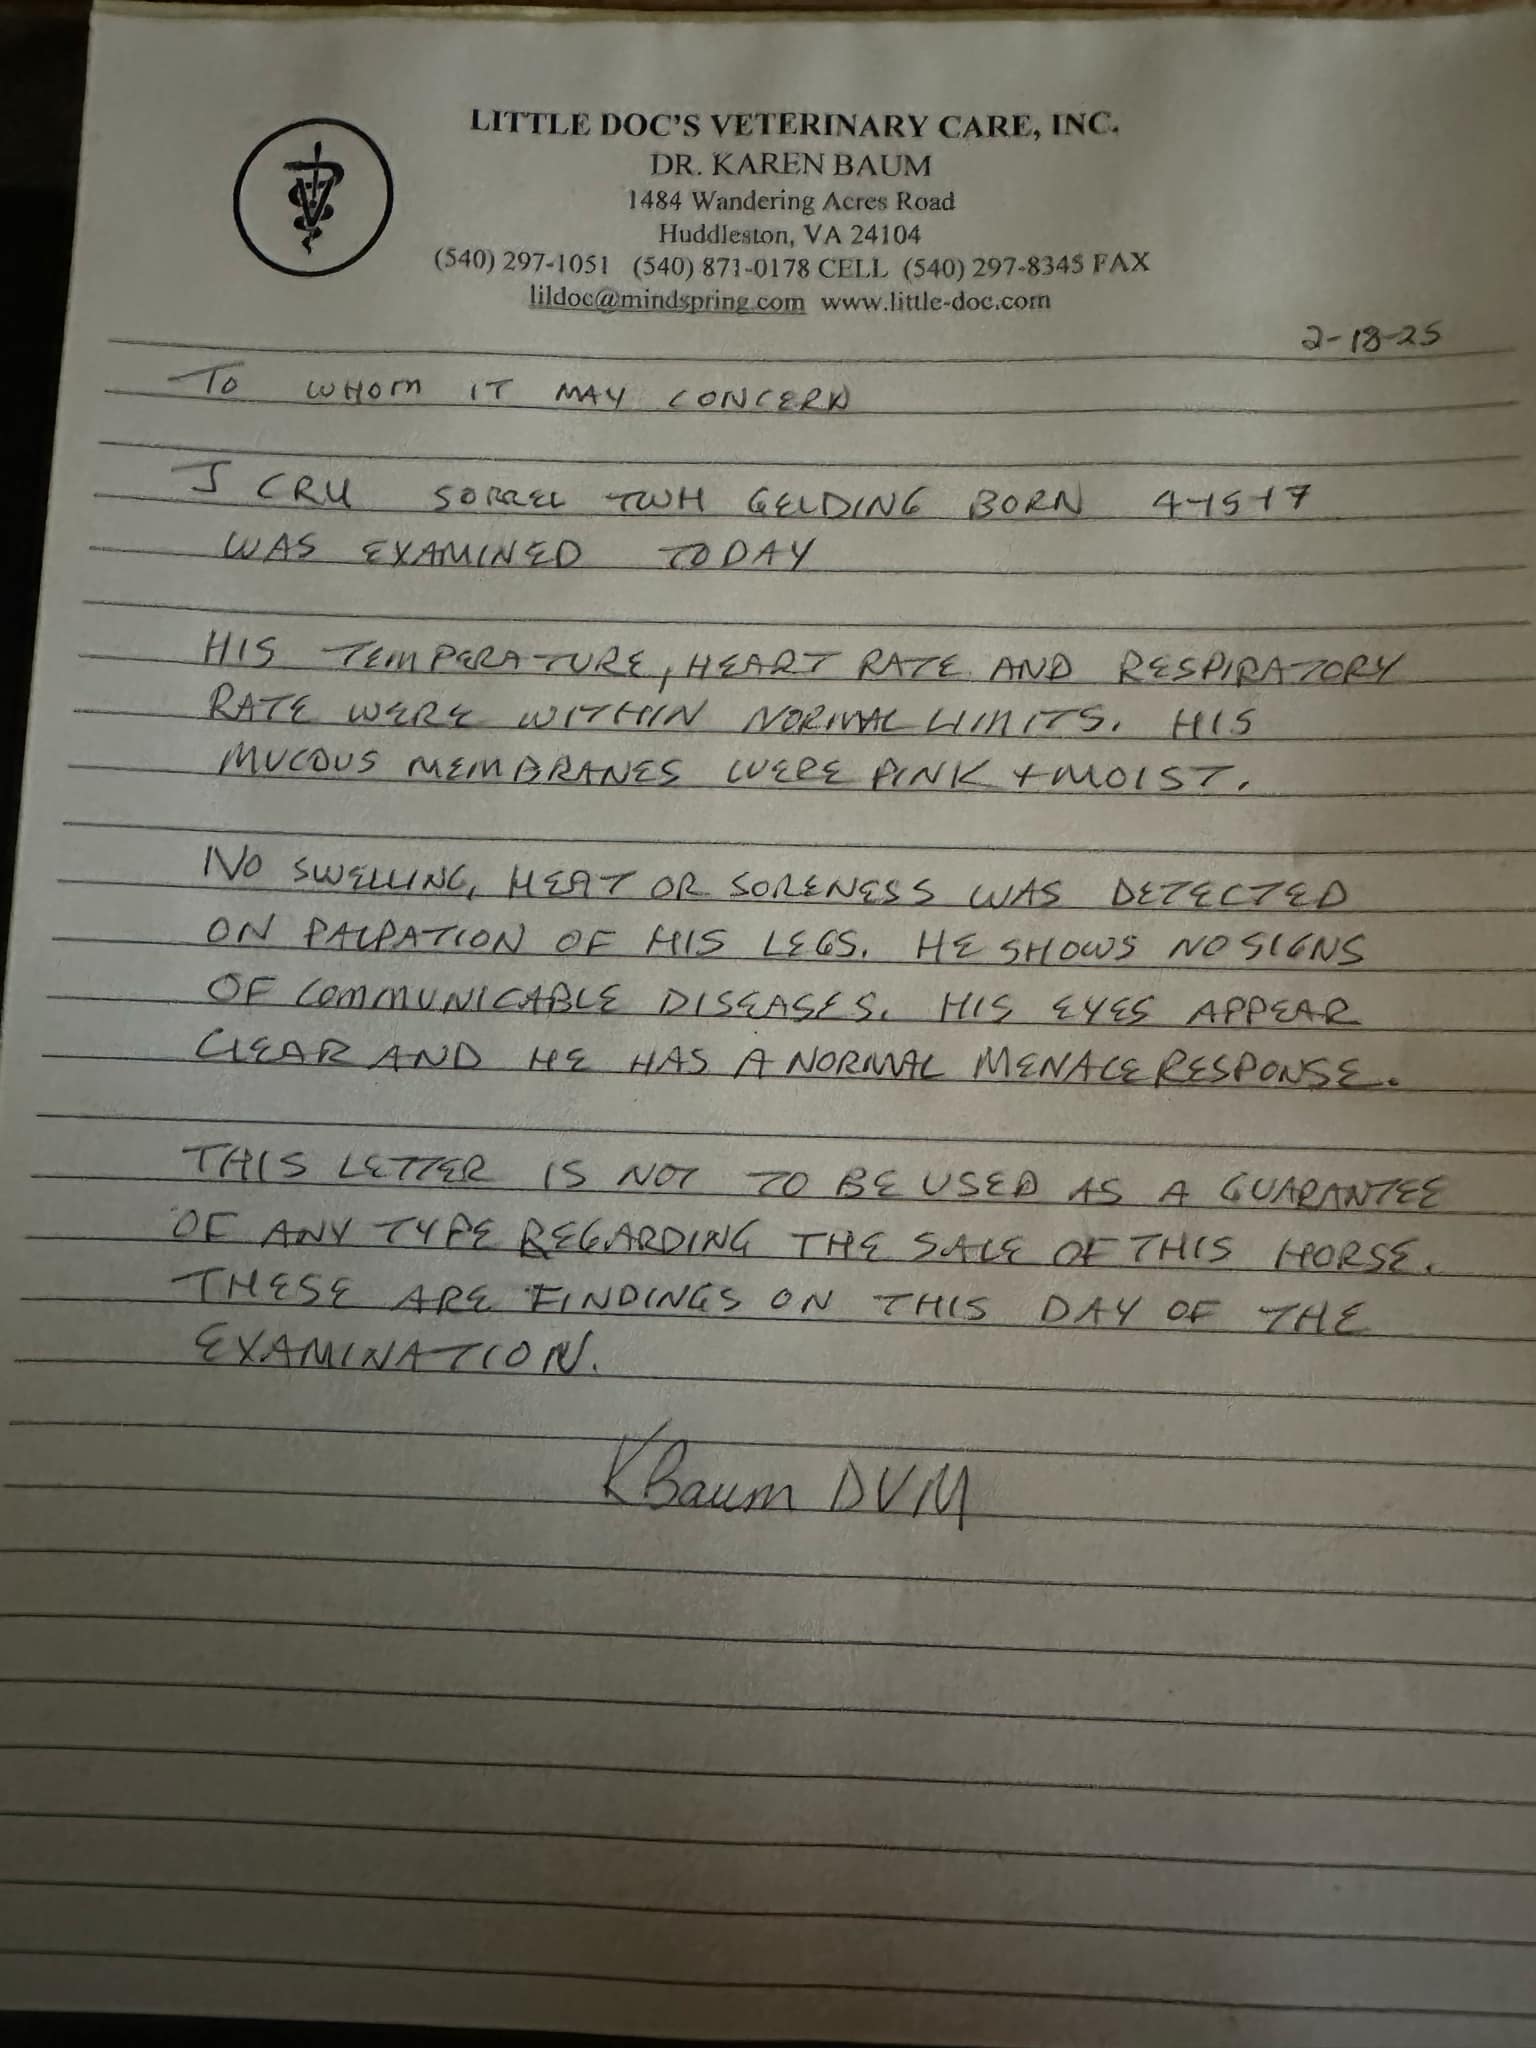 LITTLE DOC'S VETERINARY CARE, INC.
DR. KAREN BAUM
1484 Wandering Acres Road
Huddleston, VA 24104
(540) 297-1051 (540) 871-0178 CELL (540) 297-8345 FAX
lildoc@mindspring.com www.little-doc.com
2-18-25
TO WHOM IT MAY CONCERN
J CRU SORREL TWH GELDING BORN 4-15-17
WAS EXAMINED TODAY
HIS TEMPERATURE, HEART RATE AND RESPIRATORY
RATE WERE WITHIN NORMAL LIMITS. HIS
MUCOUS MEMBRANES WERE PINK + MOIST.
NO SWELLING, HEAT OR SORENESS WAS DETECTED
ON PALPATION OF HIS LEGS. HE SHOWS NO SIGNS
OF COMMUNICABLE DISEASES. HIS EYES APPEAR
CLEAR AND HE HAS A NORMAL MENACE RESPONSE.
THIS LETTER IS NOT TO BE USED AS A GUARANTEE
OF ANY TYPE REGARDING THE SALE OF THIS HORSE.
THESE ARE FINDINGS ON THIS DAY OF THE
EXAMINATION.
KBaum DVM